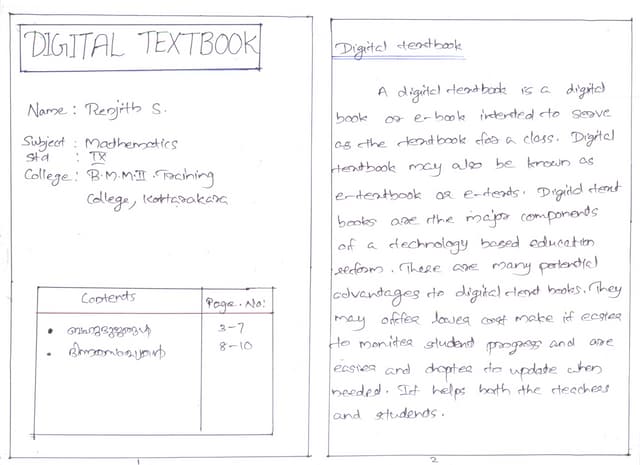 DIGITAL TEXTBOOK
Name : Renjith S.
Subject : Mathematics
Std : IX
College : B.M.M.II Training
College, Kottarakara
Contents Page. No:
• ബഹുഭുജങ്ങൾ 3-7
• ഭിന്നസംഖ്യകൾ 8-10
1
Digital textbook
A digital textbook is a digital
book or e-book intended to serve
as the textbook for a class. Digital
textbook may also be known as
e-textbook or e-texts. Digital text
books are the major components
of a technology based education
reform. There are many potential
advantages to digital text books. They
may offer lower cost make it easier
to monitor student progress and are
easier and cheaper to update when
needed. It helps both the teachers
and students.
2